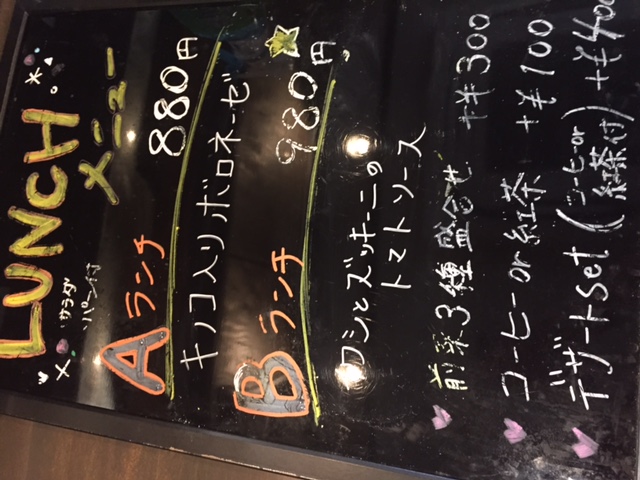 LUNCH
メニュー
サラダ
パン付
Aランチ 880円
キノコ入りボロネーゼ
Bランチ 980円
ワシとズッキーニの
トマトソース
前菜3種盛合せ +¥300
コーヒーor紅茶 +¥100
デザートset(コーヒーor紅茶付) +¥400